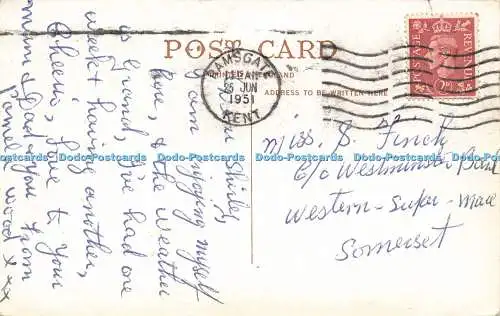 POST CARD
PRINTED IN ENGLAND
ADDRESS TO BE WRITTEN HERE
RAMSGATE
25 JUN
1951
KENT
POSTAGE
REVENUE
Shirley
I am enjoying myself
here, & the weather
is grand, I've had one
week & having another,
Cheerio, love to your
mum & Dad & you from
Pamela Wood x xx
Miss. S. Finch
C/o Westminster Bank
Western-Super-Mare
Somerset
Dodo-Postcards Dodo-Postcards Dodo-Postcards Dodo-Postcards Dodo-Postcards